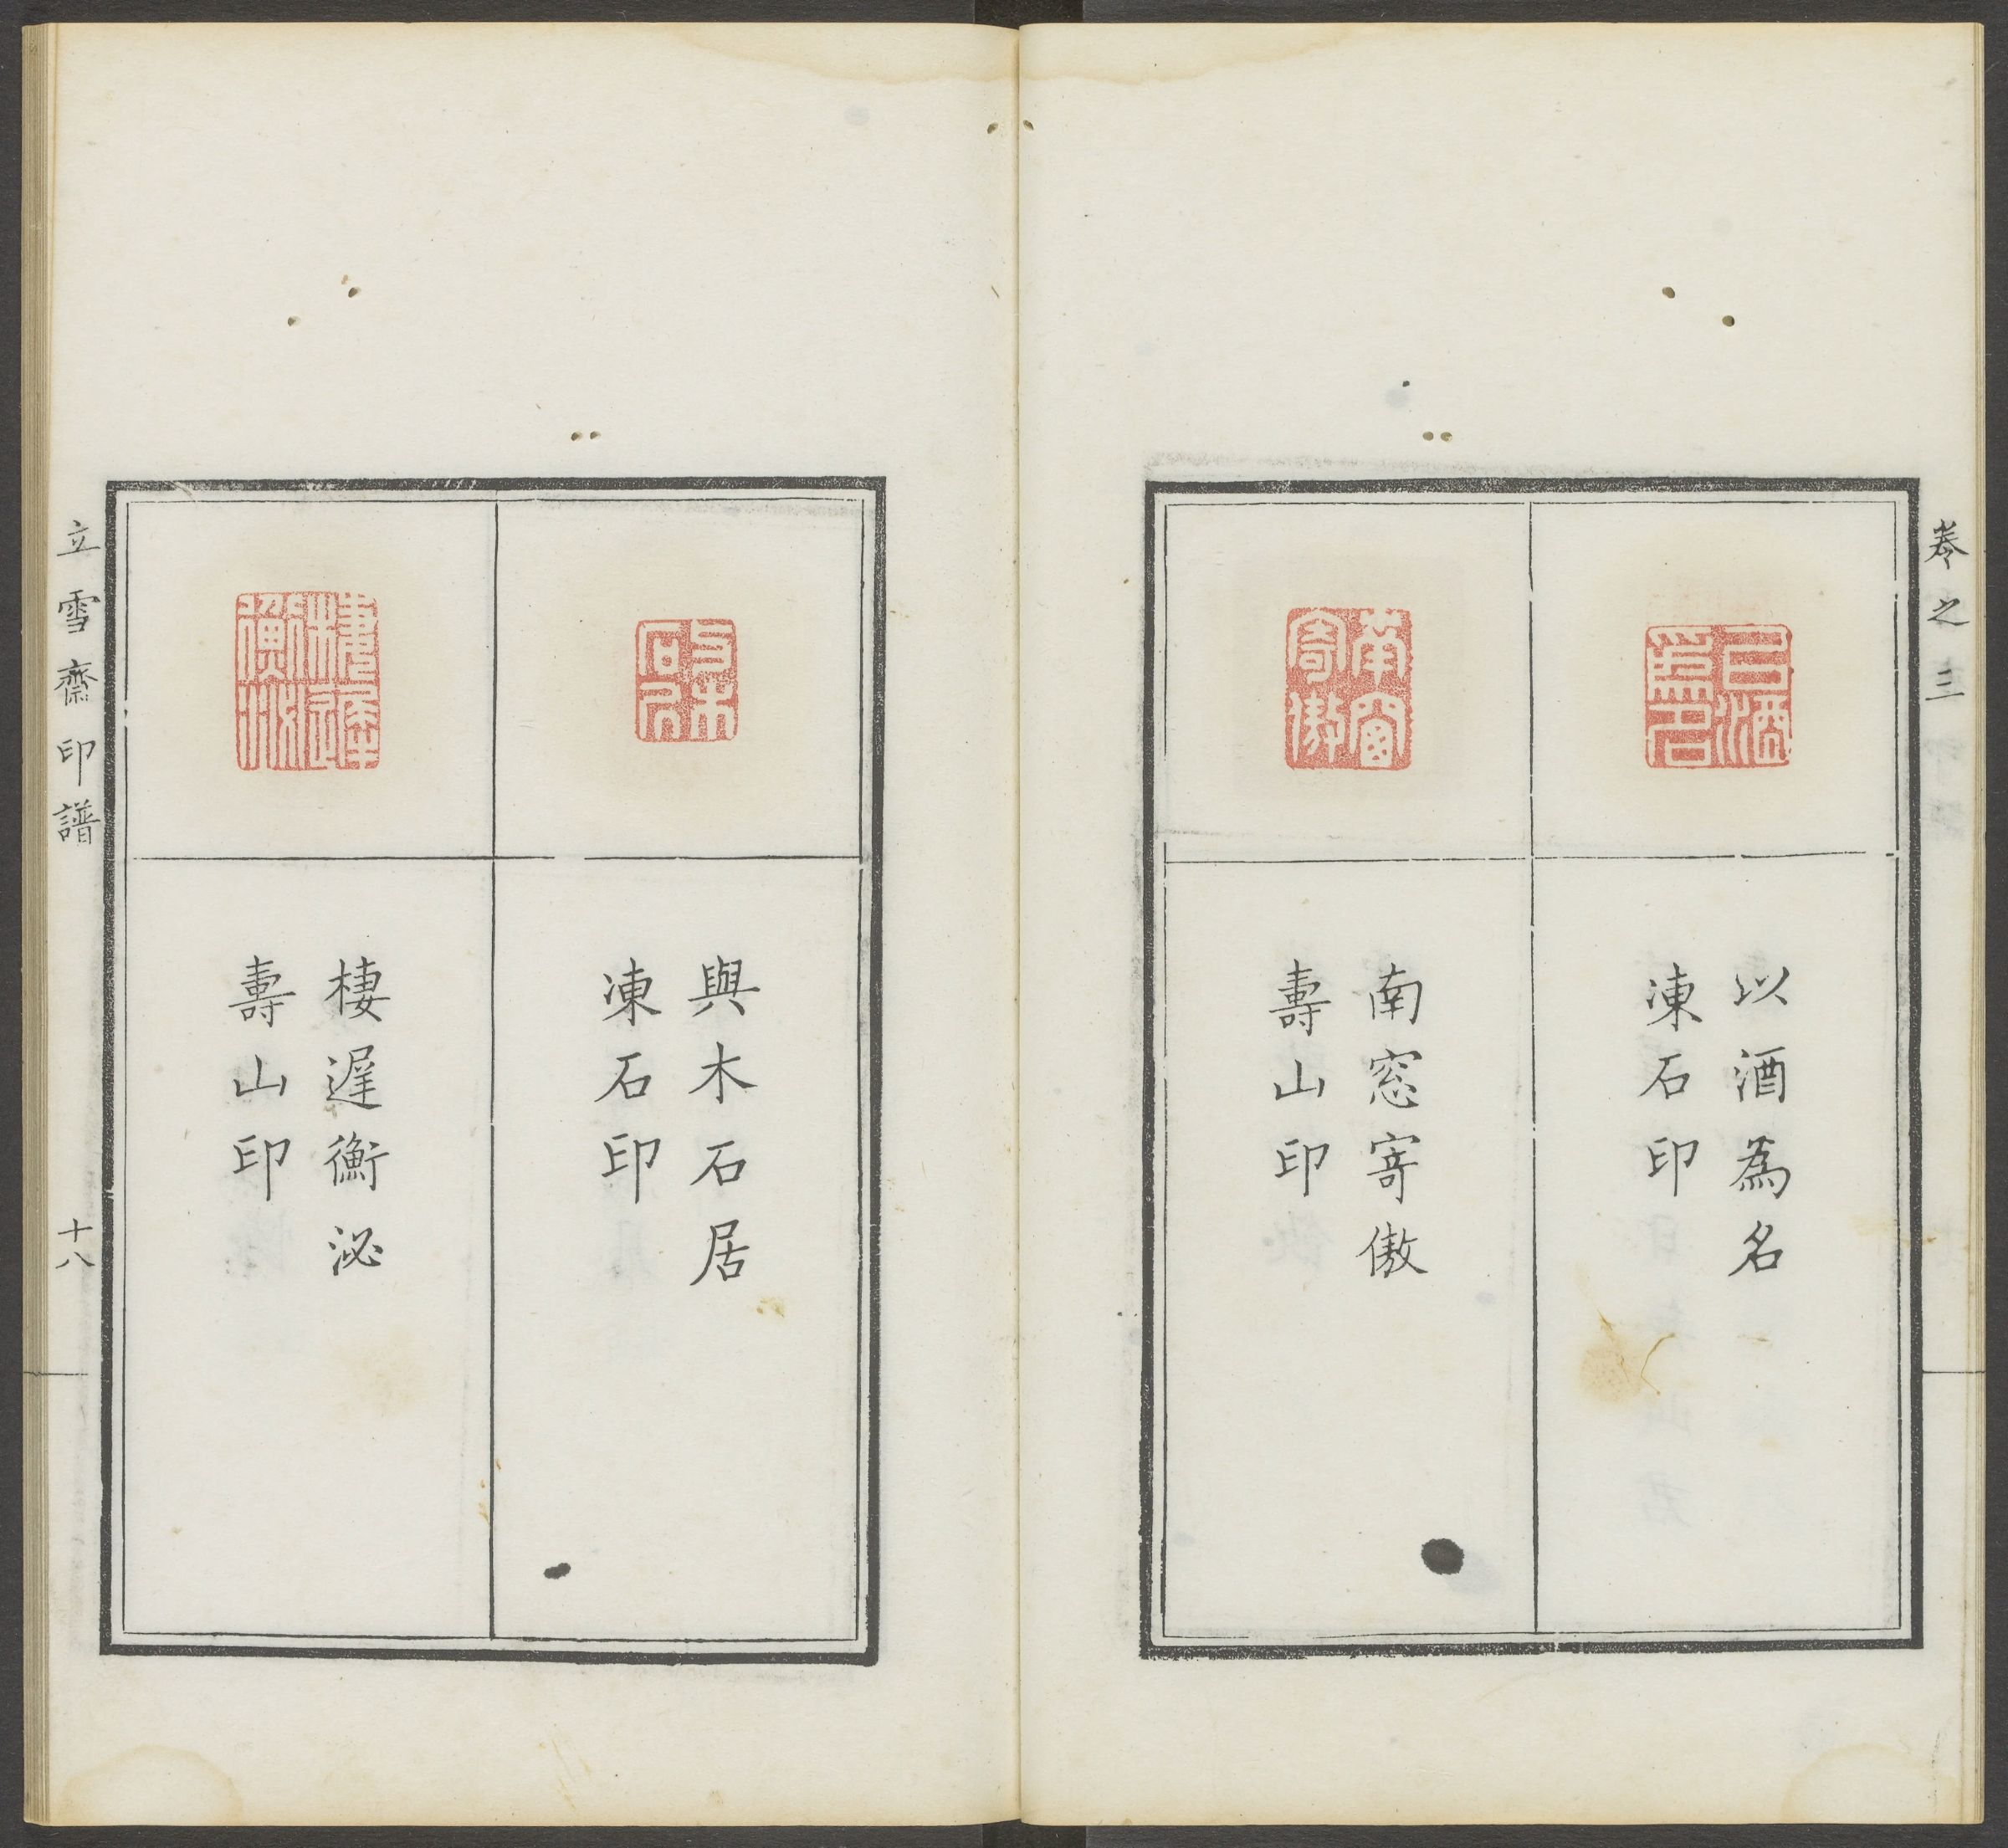 卷之三
以酒為名
凍石印
南窓寄傲
壽山印
與木石居
凍石印
棲遅衡泌
壽山印
立雪齋印譜
十八